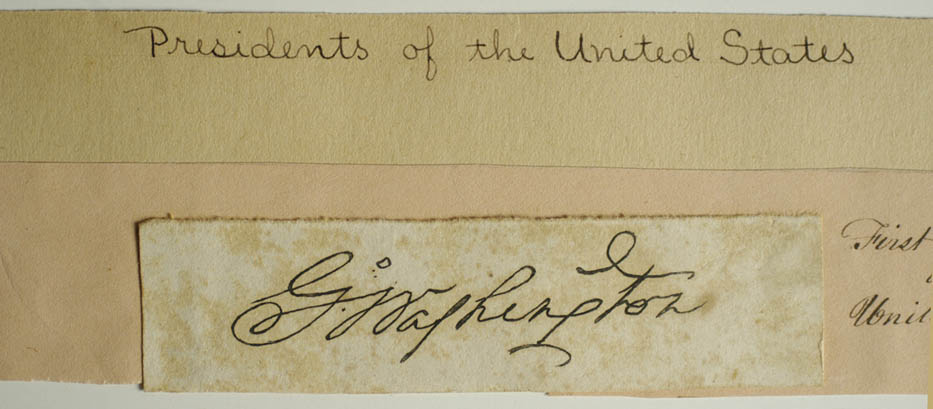 Presidents of the United States
G. Washington
First